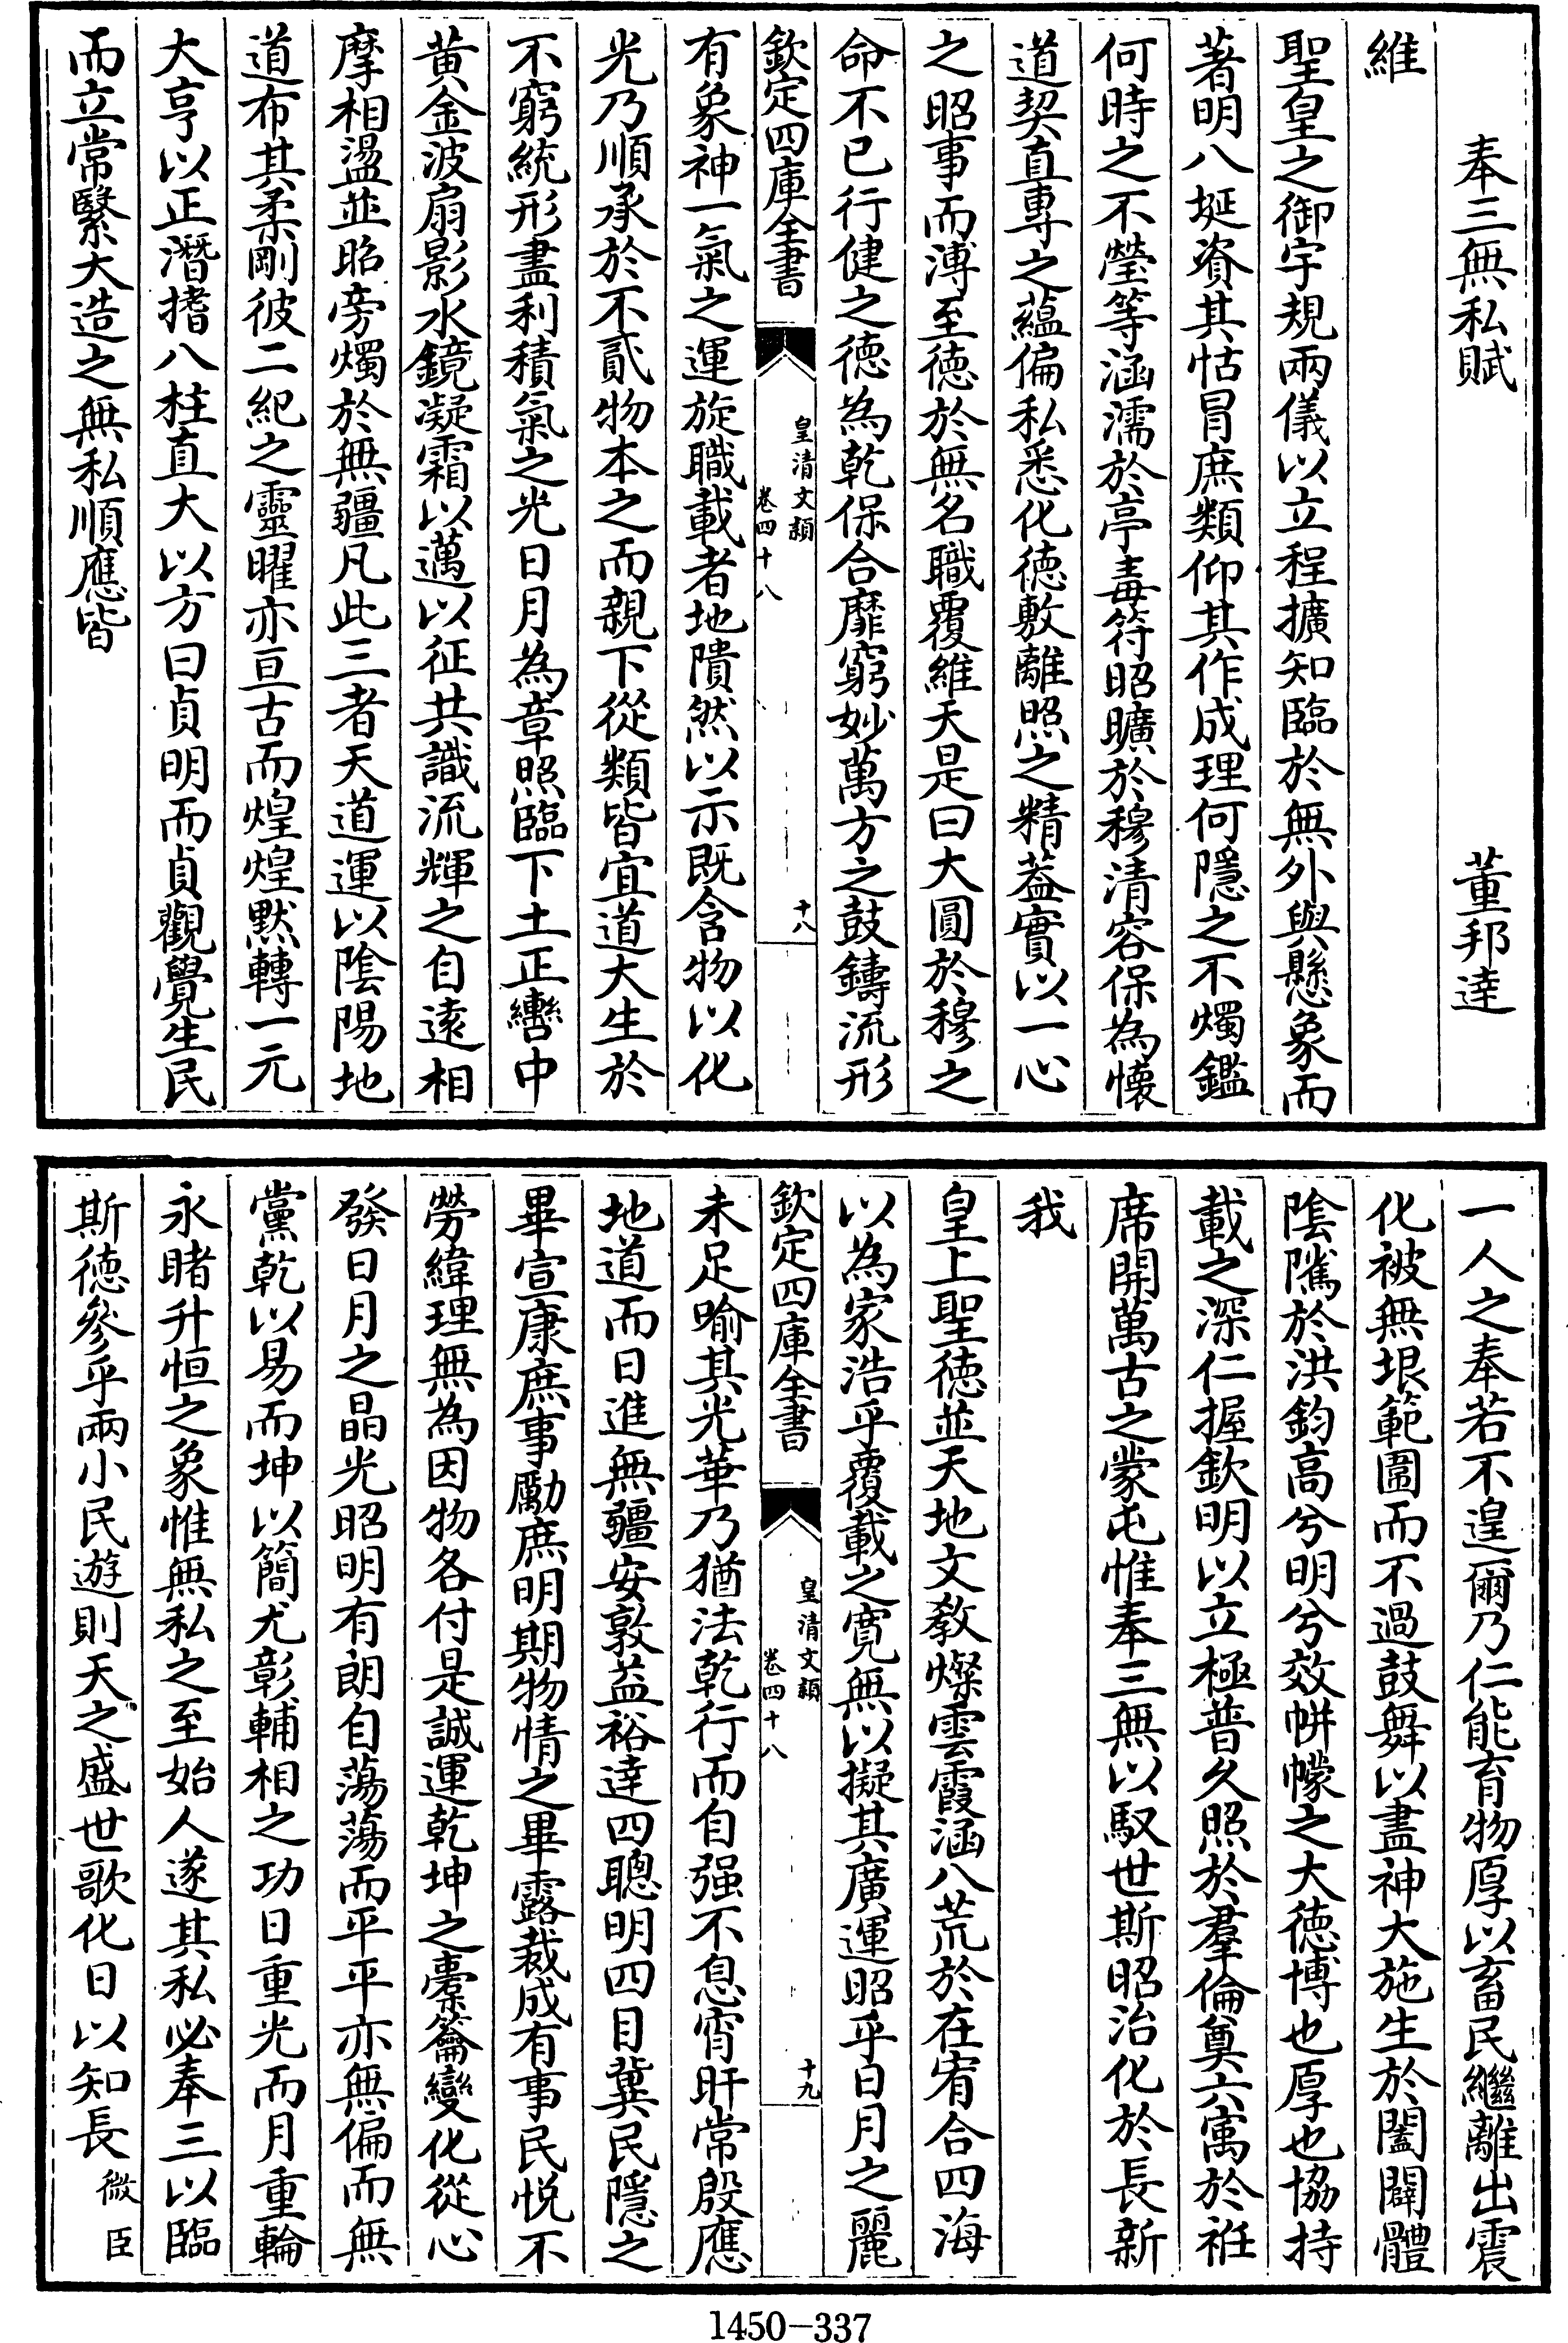 奉三無私賦　董邦達
維
聖皇之御宇規兩儀以立程擴知臨於無外與懸象而
著明八埏資其怙冒庶類仰其作成理何隱之不燭鑑
何時之不瑩等涵濡於亭毒符昭曠於穆清容保為懷
道契直專之蘊偏私悉化德敷離照之精蓋實以一心
之昭事而溥至德於無名職覆維天是曰大圓於穆之
命不已行健之德為乾保合靡窮妙萬方之鼓鑄流形
欽定四庫全書
皇清文穎
卷四十八
十八
有象神一氣之運旋職載者地隤然以示既含物以化
光乃順承於不貳物本之而親下從類皆宜道大生於
不窮統形盡利積氣之光日月為章照臨下土正轡中
黃金波扇影水鏡凝霜以邁以征共識流輝之自遠相
摩相盪並昭旁燭於無疆凡此三者天道運以陰陽地
道布其柔剛彼二紀之靈曜亦亘古而煌煌默轉一元
大亨以正潛搘八柱直大以方曰貞明而貞觀覺生民
而立常繄大造之無私順應皆
一人之奉若不遑爾乃仁能育物厚以畜民繼離出震
化被無垠範圍而不過鼓舞以盡神大施生於闔闢體
陰隲於洪鈞高兮明兮效帡幪之大德博也厚也協持
載之深仁握欽明以立極普久照於羣倫奠六寓於袵
席開萬古之蒙屯惟奉三無以馭世斯昭治化於長新
我
皇上聖德並天地文教燦雲霞涵八荒於在宥合四海
以為家浩乎覆載之寛無以擬其廣運昭乎日月之麗
欽定四庫全書
皇清文穎
卷四十八
十九
未足喻其光華乃猶法乾行而自强不息宵旰常殷應
地道而日進無疆安敦益裕達四聰明四目冀民隱之
畢宣康庶事勵庶明期物情之畢露裁成有事民悦不
勞緯理無為因物各付是誠運乾坤之橐籥變化從心
發日月之晶光昭明有朗自蕩蕩而平平亦無偏而無
黨乾以易而坤以簡尤彰輔相之功日重光而月重輪
永睹升恒之象惟無私之至始人遂其私必奉三以臨
斯德參乎兩小民遊則天之盛世歌化日以知長微臣
1450-337